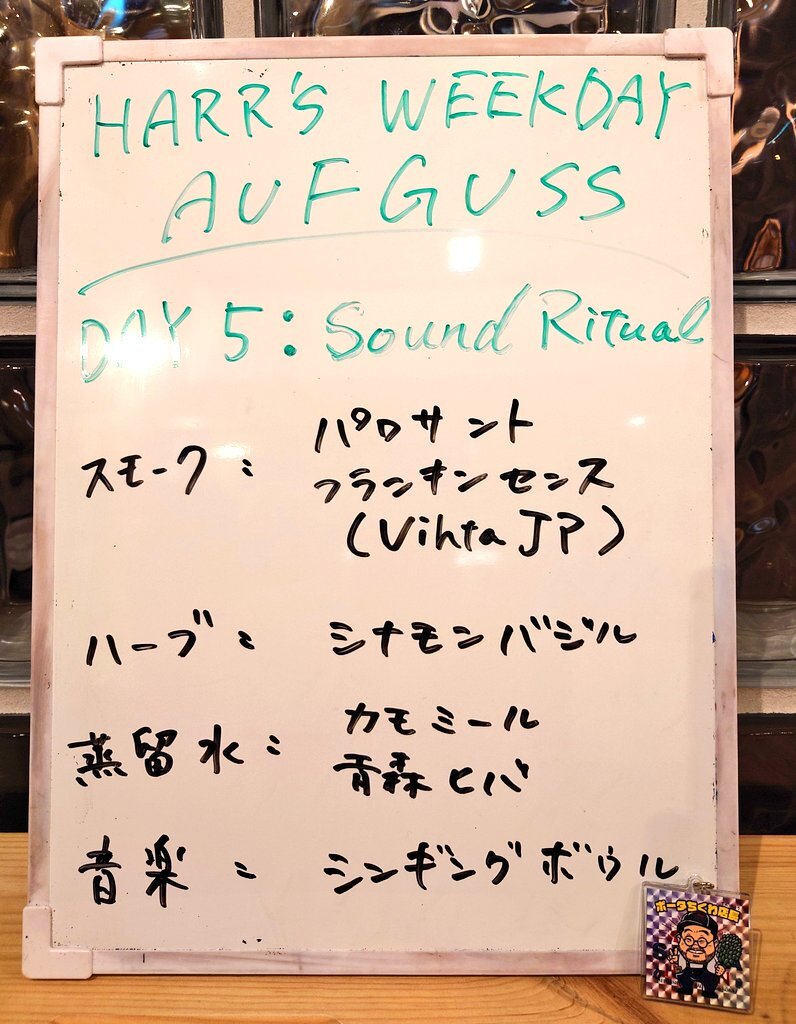 HARR'S WEEKDAY
AUFGUSS
DAY 5: Sound Ritual
スモーク: パロサント
フランキンセンス
(Vihta JP)
ハーブ: シナモンバジル
蒸留水: カモミール
青森ヒバ
音楽: シンギングボウル
ポータちくわ店長